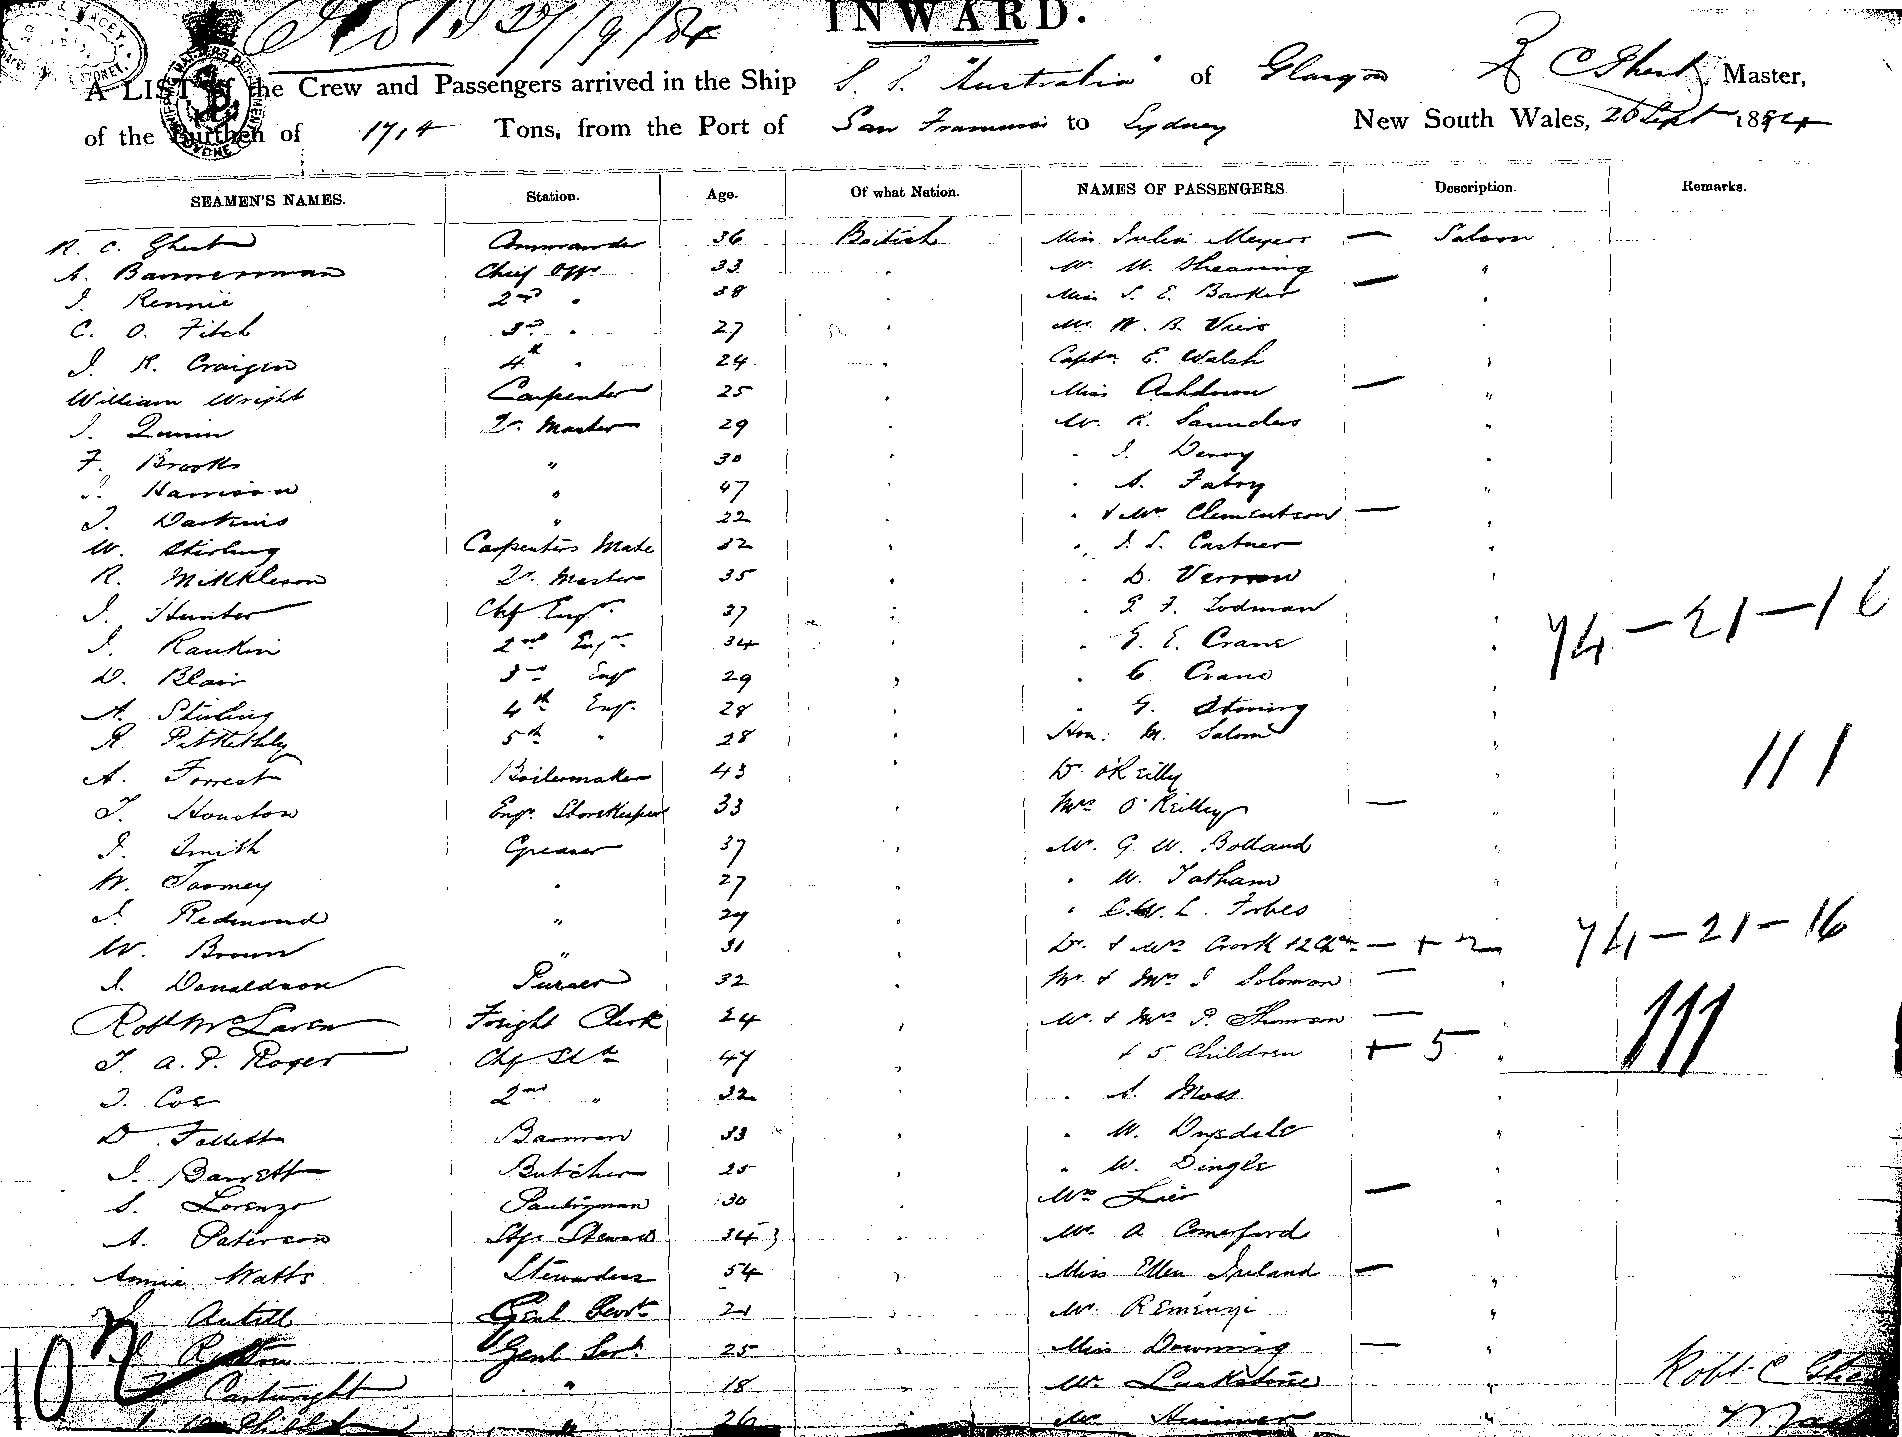 INWARD.
A LIST of the Crew and Passengers arrived in the Ship S. S. "Australia" of Glasgow R C Ghest Master,
of the Burthen of 1714 Tons, from the Port of San Francisco to Sydney New South Wales, 26 Sept 1884
SEAMEN'S NAMES. Station. Age. Of what Nation. NAMES OF PASSENGERS. Description. Remarks.
R. C. Ghest Commander 36 British Miss Julia Meyers — Saloon
A. Bannerman Chief Offr 33 Mr. W. Shearing "
J. Rennie 2nd " 38 Miss S. E. Barker —
C. O. Fitch 3rd " 27 Mr. W. B.
J. R. Craigen 4th " 24 Captn E. Walsh
William Wright Carpenter 25 Miss Ashdown — "
J. Quinn Qr. Master 29 Mr. R. Saunders "
F. Brooks " 30 " J. "
J. Harrison " 47 " A. Fabry "
J. " 22 " & Mrs Clementson —
W. Stirling Carpenters Mate 32 " J. S. Castner
R. Mikkleson Qr. Master 35 " D. Vernon
J. Hunter Chf Engr. 37 " F. Todman 74—21—16
J. Rankin 2nd Engr. 34 " G. E. Crane
D. Blair 3rd Engr 29 " C. Crane
A. Stirling 4th Engr. 28 " G.
R. Pitkethly 5th " 28 Hon: M. Salom 111
A. Forrest Boilermaker 43 Dr O'Reilly
T. Houston Engr. Storekeeper 33 Mrs O'Reilly —
J. Smith Greaser 37 Mr. G. W. Bolland
W. Toomey " 27 " W. Tatham
J. Redmond " 29 " C. W. L. Forbes
W. Brown " 31 Dr. & Mrs Crook & 2 Chn — + 2 74—21—16
J. Donaldson Purser 32 Mr. & Mrs J Solomon —
Robt McLaren Freight Clerk 24 Mr. & Mrs P. — 111
T. A. P. Roger Chf Std 47 & 5 Children + 5
J. Coe 2nd " 32 " A. Moss
D. Follett Barman 33 " W. Drysdale
J. Barrett Butcher 25 " W. Dingle
S. Lorenzo Pantryman 30 Mrs —
A. Paterson Stge Steward 34 Mr. A Comerford
Annie Watts Stewardess 54 Miss Ellen Ireland — "
Antill Genl Servt 21 Mr. Reményi "
Genl Ser. 25 Miss Downing — " Robt C Ghest
Cartwright " 18 Mr. "
" 26 Mr "
102